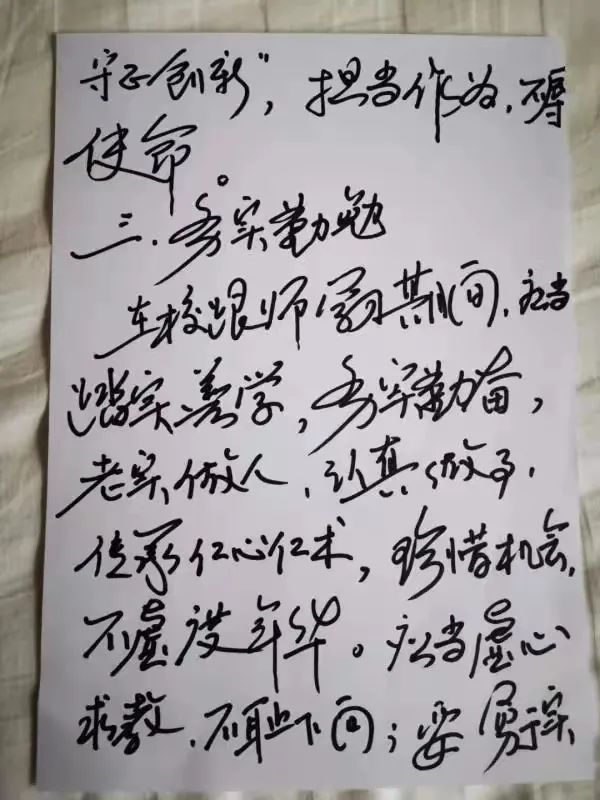 守正创新”，担当作为，不辱
使命。
三．务实勤勉
在校跟师学习期间，应当
踏实善学，务实勤奋，
老实做人，认真做事，
传承仁心仁术，珍惜机会，
不虚度年华。应当虚心
求教，不耻下问；要勇于实